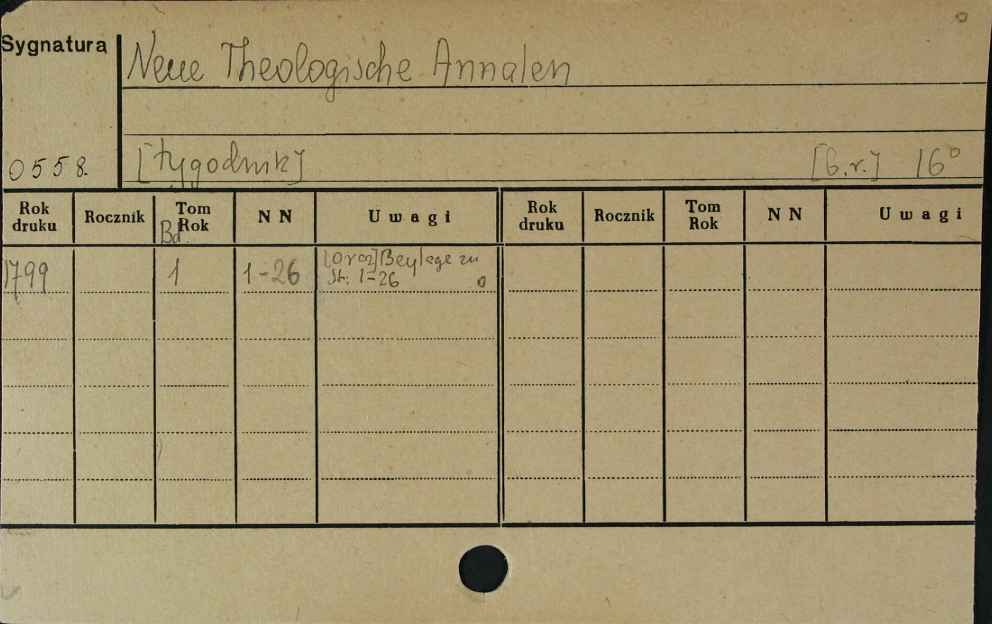 Sygnatura
Neue Theologische Annalen
0558.
[tygodnik]
[b.r.] 16°
Rok druku
Rocznik
Tom Rok
Bd.
NN
Uwagi
Rok druku
Rocznik
Tom Rok
NN
Uwagi
1799
1
1-26
[oraz] Beylage zu
St. 1-26